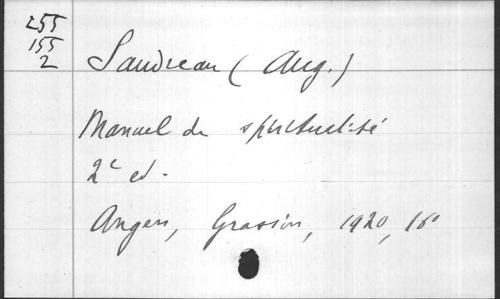 255
155
2
Saudreau (Aug.)
Manuel de spiritualité
2e ed.
Angers, Grassin, 1920, 16°